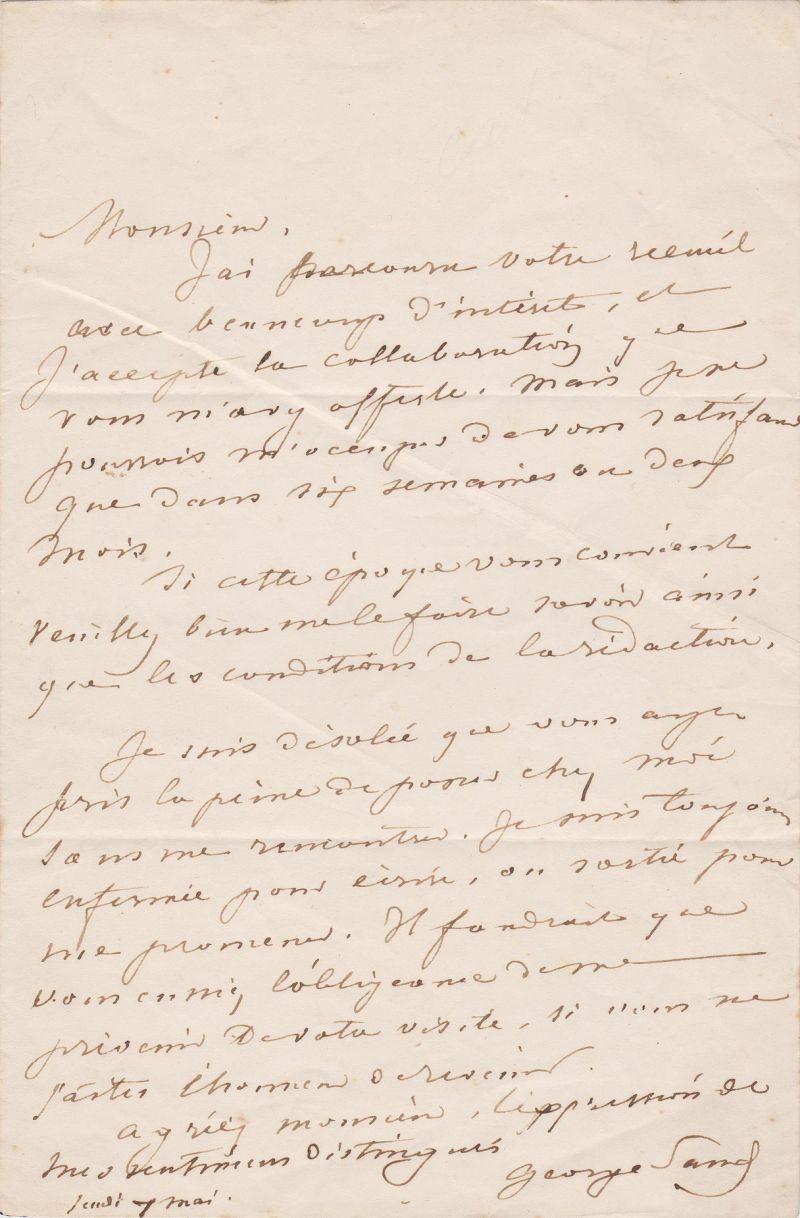 Monsieur,
J'ai parcouru votre recueil
avec beaucoup d'intérêt, et
j'accepte la collaboration que
vous m'avez offerte. Mais je ne
pourrois m'occuper de vous satisfaire
que dans six semaines ou deux
mois.
Si cette époque vous convient
veuillez bien me le faire savoir ainsi
que les conditions de la rédaction.
Je suis désolée que vous ayez
pris la peine de passer chez moi
sans me rencontrer. Je suis toujours
enfermée pour écrire, ou sortie pour
me promener. Il faudrait que
vous eussiez l'obligeance de me
prévenir de votre visite, si vous me
faites l'honneur de revenir.
Agréez monsieur, l'expression de
mes sentimens distingués
George Sand
jeudi 7 mai.